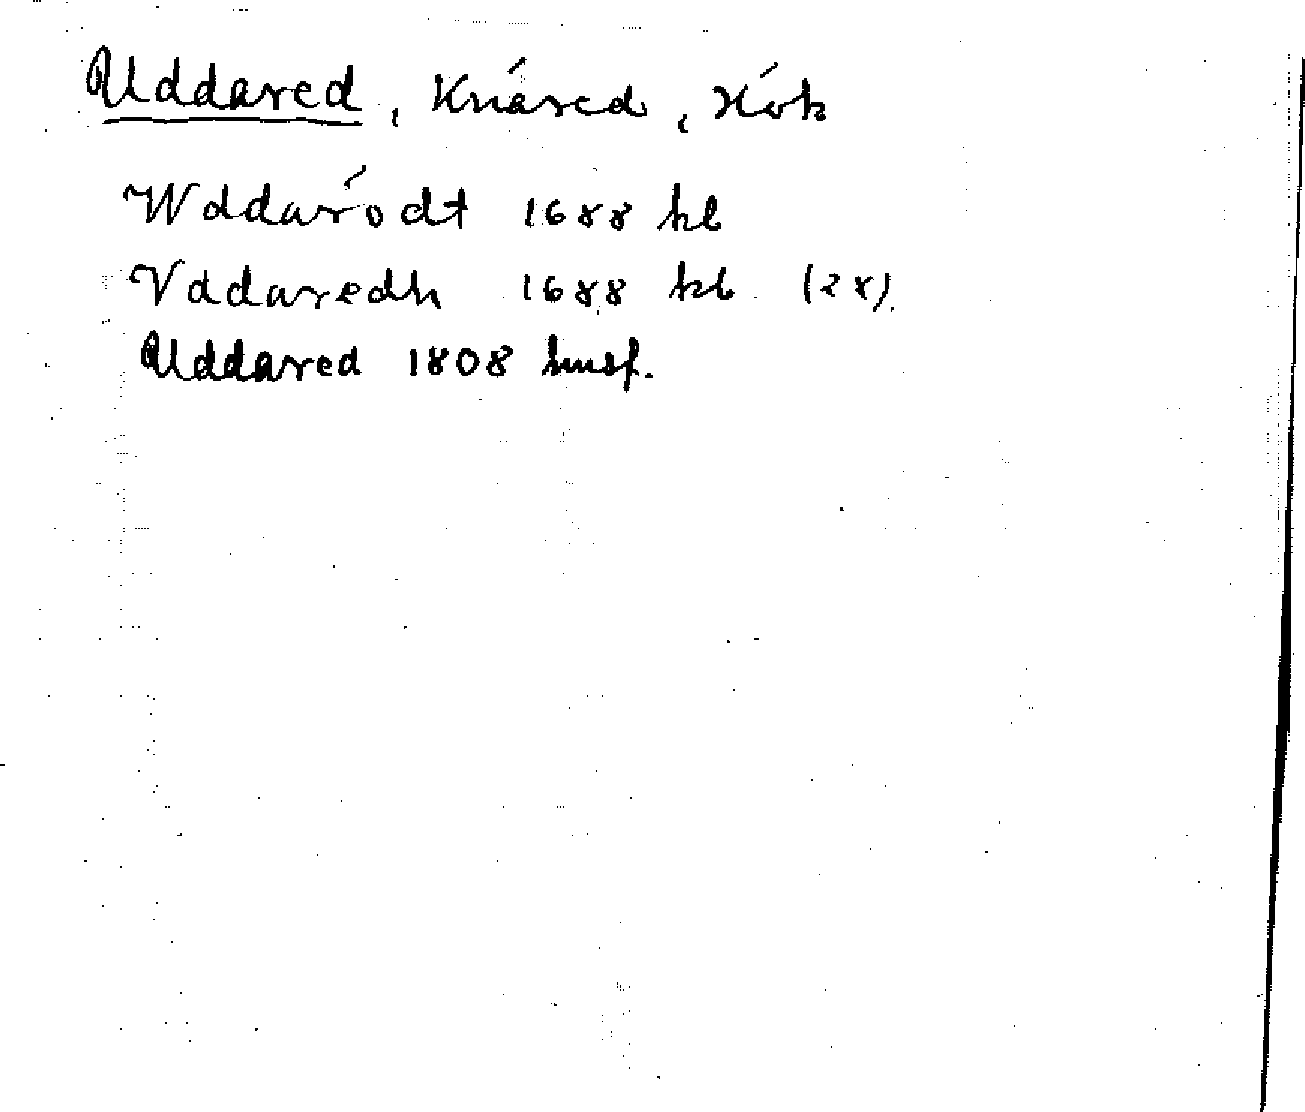 Uddared, Knäred, Hök
Wddarödt 1688 kb
Vddaredh 1688 kb (2x).
Uddared 1808 husf.